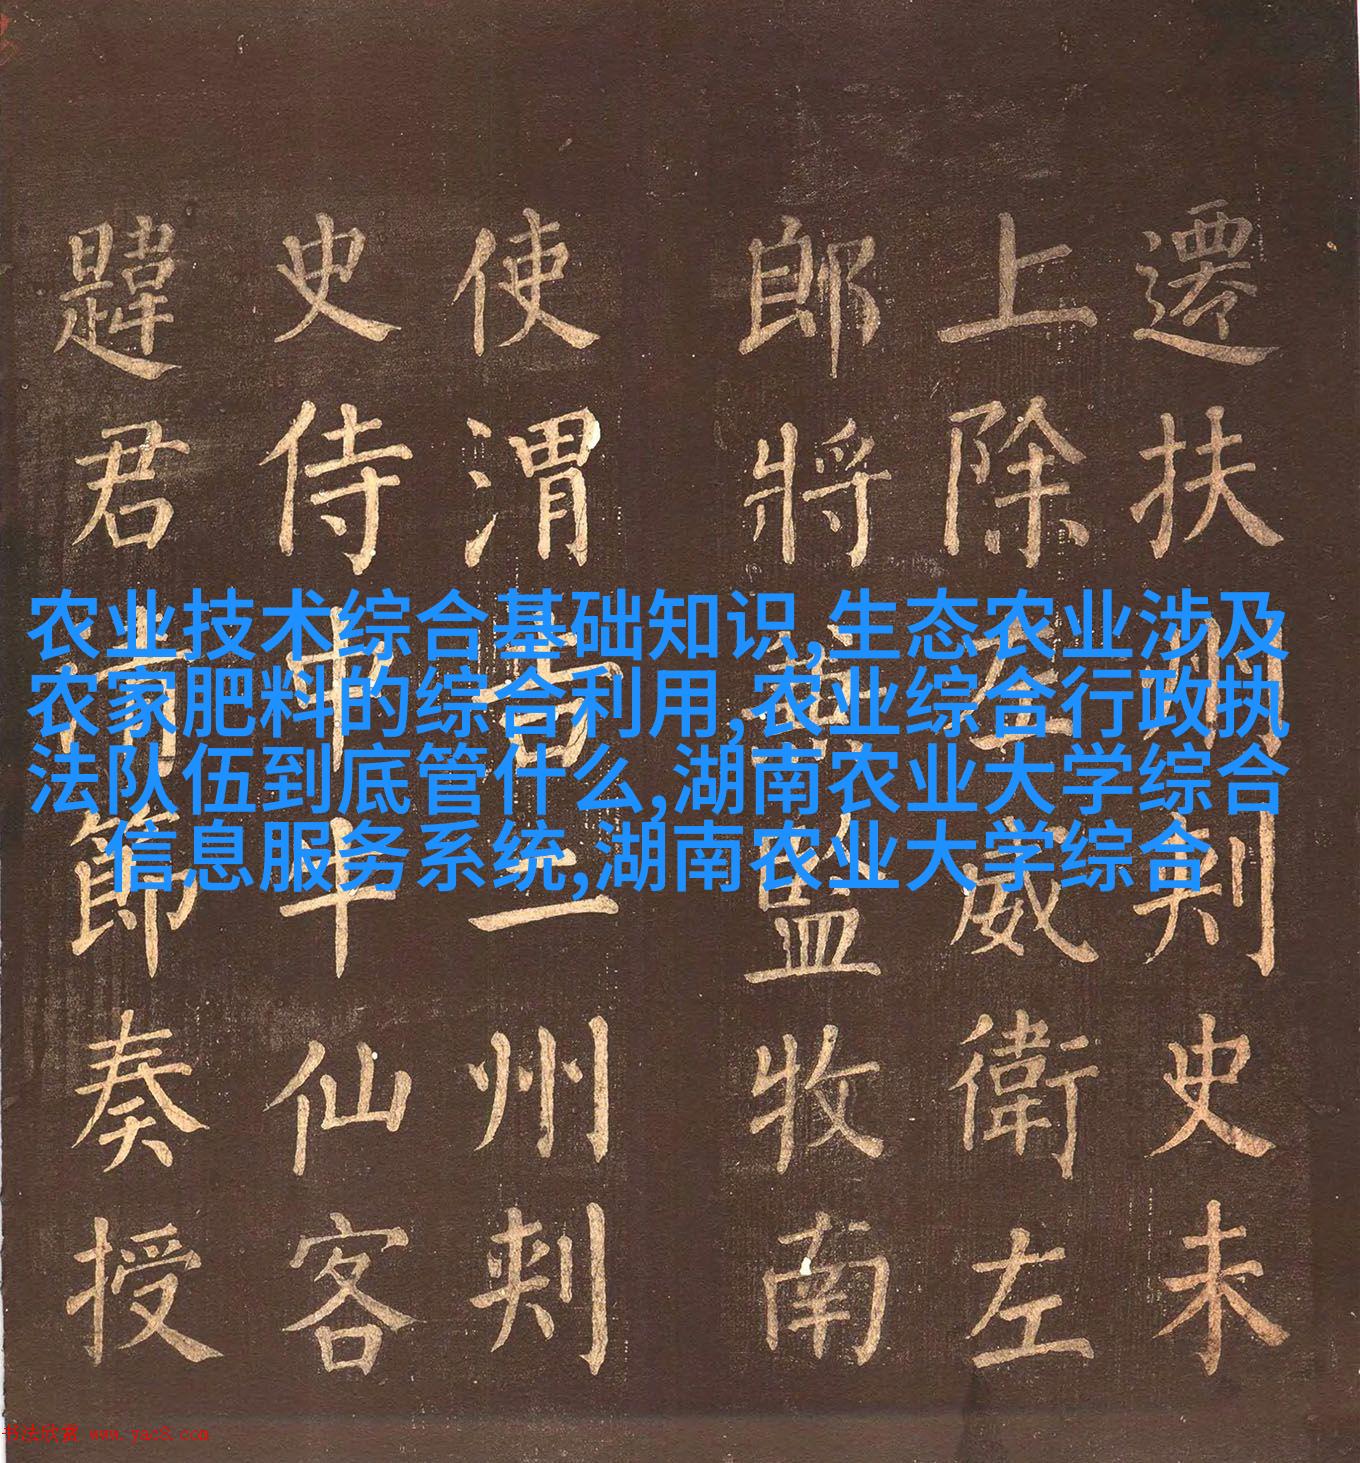 遷扶州刺史未
上除左威衛左
郎將監牧南
使渭吉二州刺
史侍中牛仙客
韙君清節奏授
农业技术综合基础知识,生态农业涉及
农家肥料的综合利用,农业综合行政执
法队伍到底管什么,湖南农业大学综合
信息服务系统,湖南农业大学综合
书法欣赏 www.yac8.com